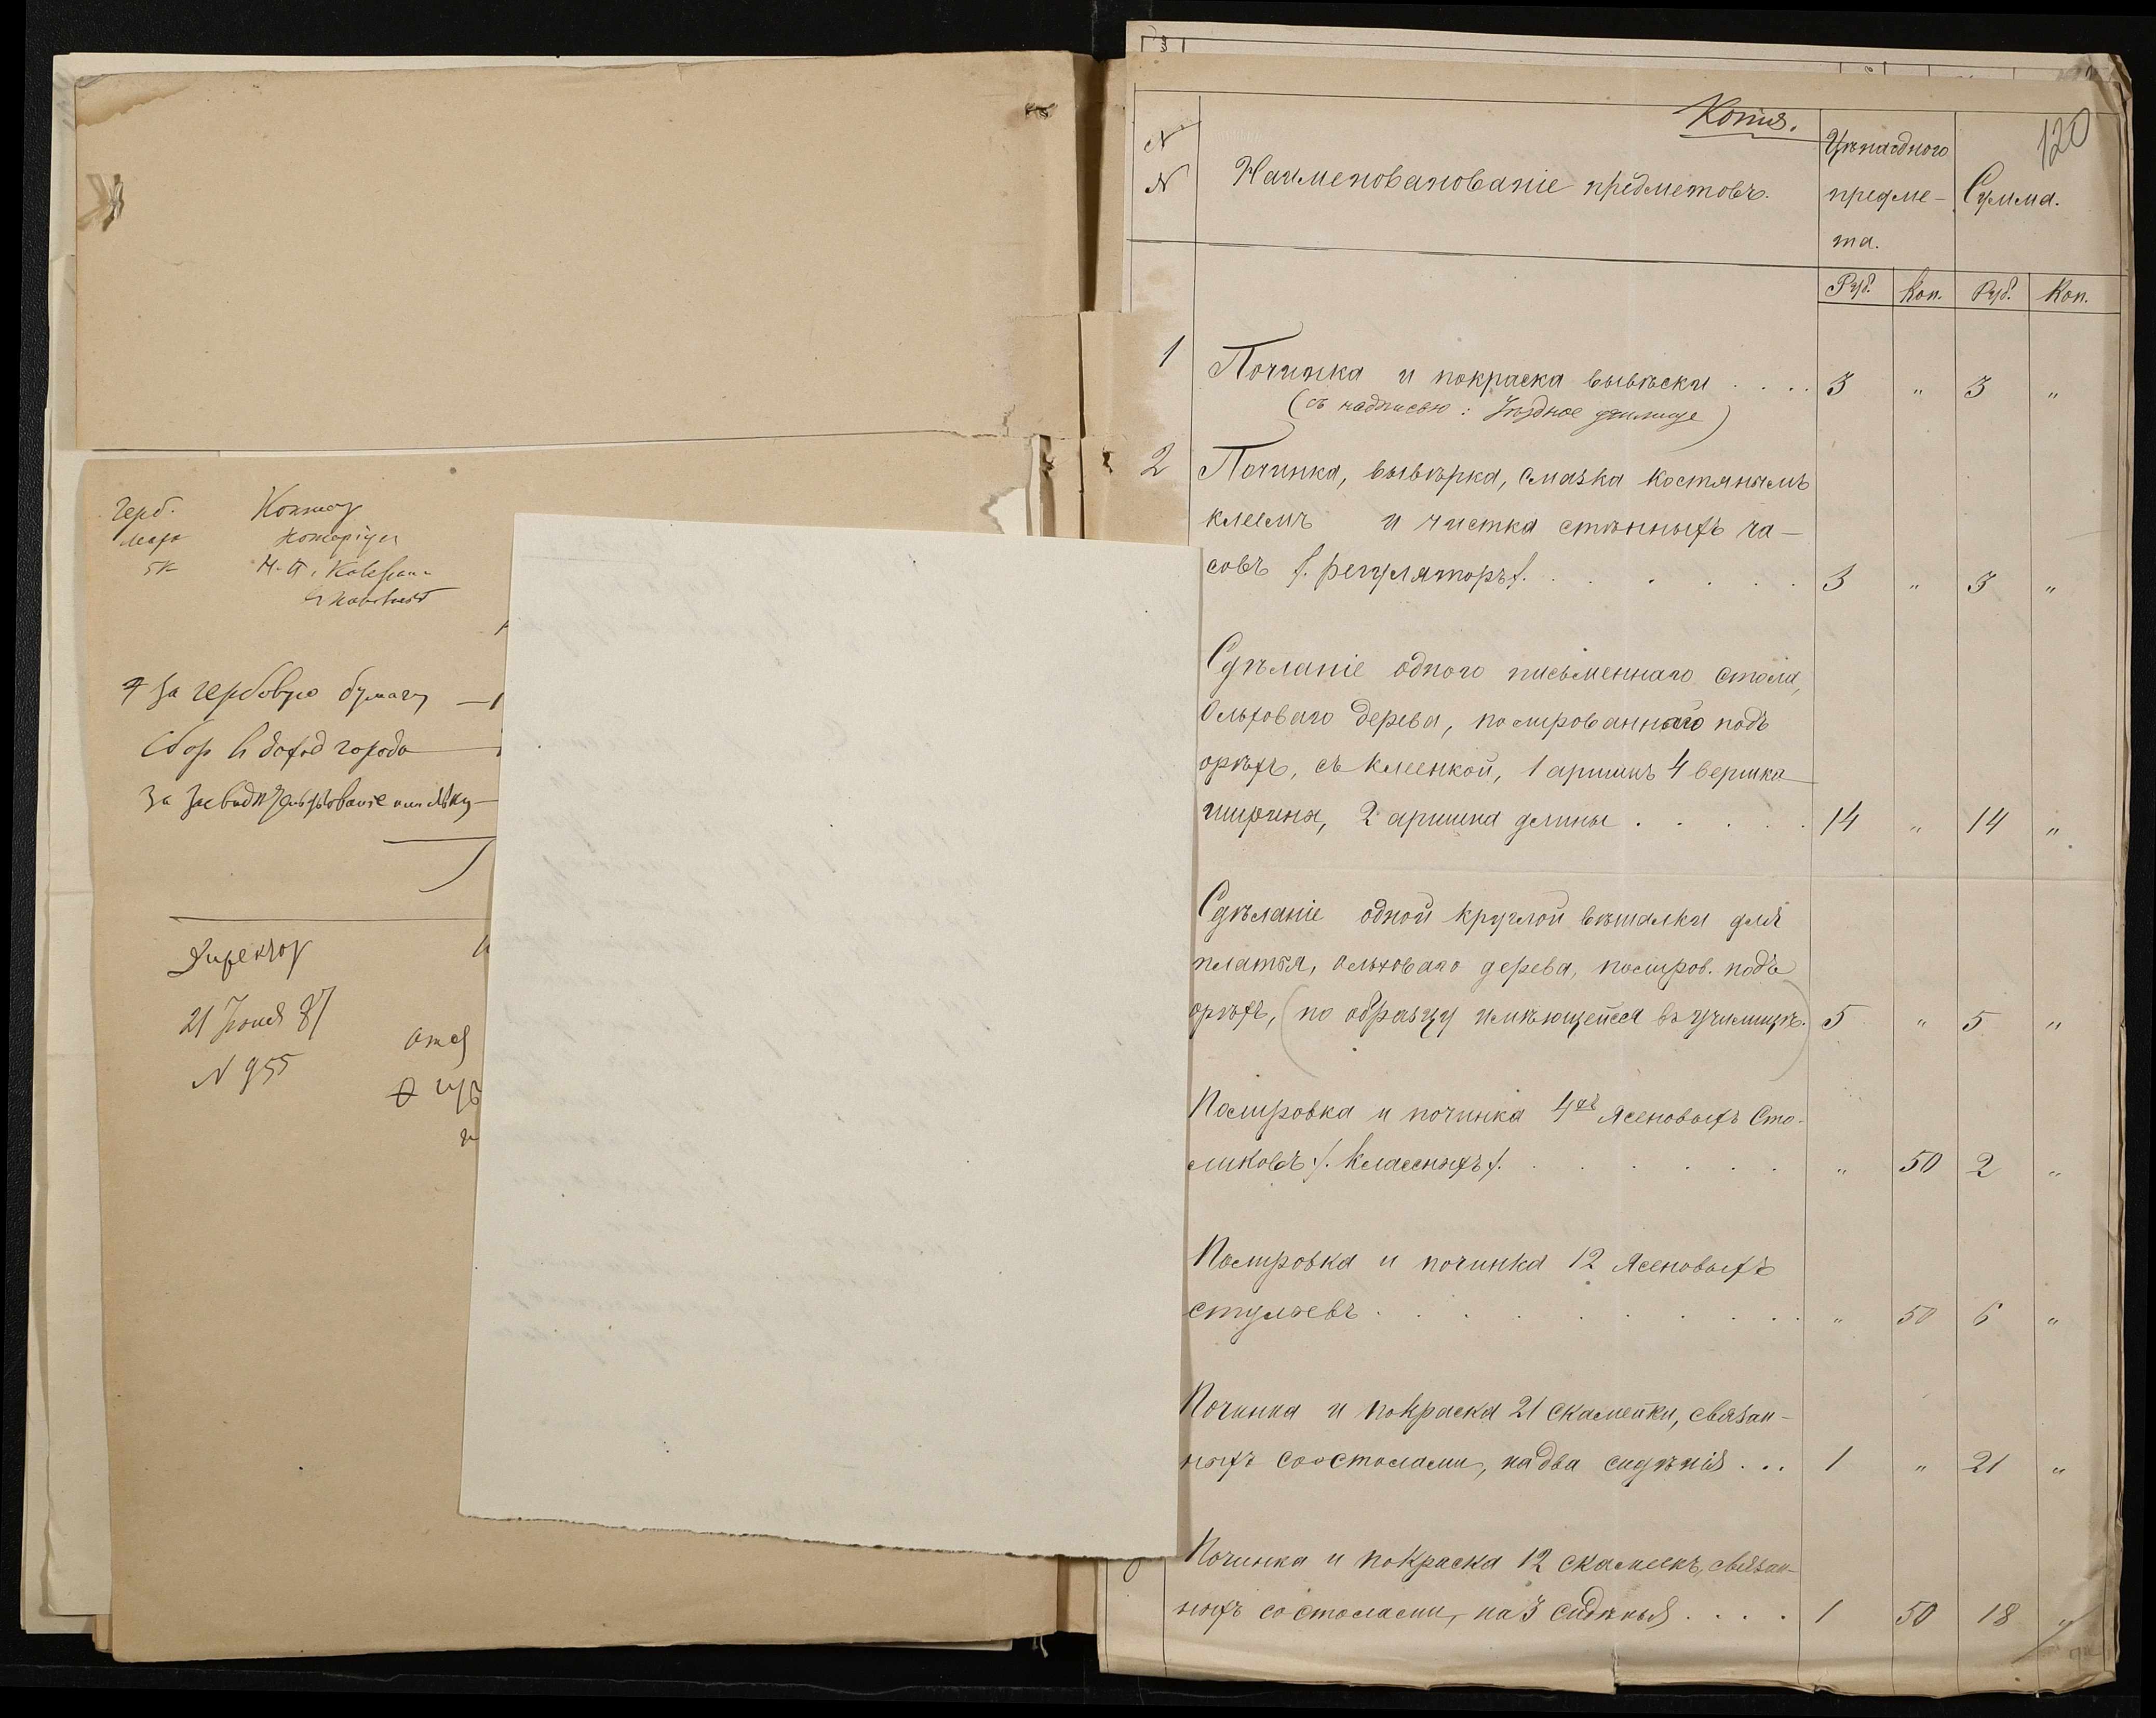 Герб.
марк
5 к
за гербовую бумагу —
Сбор в доход города
За засвидѣтельствованіе
Директор
21 Іюня 87
N 955
Копія.
120
N
N
Наименованованіе предметовъ.
Цѣна одного
предме-
та.
Сумма.
Руб. Коп. Руб. Коп.
1 Починка и покраска вывѣски . . . . 3 " 3 "
(съ надписью: Уѣздное училище)
2 Починка, вывѣрка, смазка костянымъ
клеемъ и чистка стѣнныхъ ча-
совъ /. регуляторъ /. . . . . . 3 " 3 "
Сдѣланіе одного письменнаго стола,
Ольховаго дерева, полированнаго подъ
орѣхъ, съ клеенкой, 1 аршинъ 4 вершка
ширины, 2 аршина длины . . . . . 14 " 14 "
Сдѣланіе одной круглой вѣшалки для
платья, ольховаго дерева, полиров. подъ
орѣхъ, (по образцу имѣющейся въ училищѣ.) 5 " 5 "
Полировка и починка 4хъ Ясеновыхъ Сто-
ликовъ /. Классныхъ /. . . . . . " 50 2 "
Полировка и починка 12 Ясеновыхъ
стульевъ . . . . . . . . " 50 6 "
Починка и покраска 21 скамейки, связан-
ныхъ со столами, на два сидѣнія . . . 1 " 21 "
Починка и покраска 12 скамеекъ, связан-
ныхъ со столами, на 3 сидѣнья . . . . 1 50 18 "